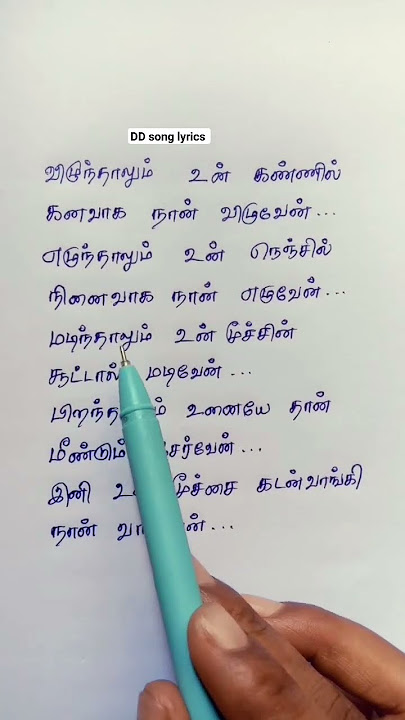 DD song lyrics
விழுந்தாலும் உன் கண்ணில்
கனவாக நான் விழுவேன்...
எழுந்தாலும் உன் நெஞ்சில்
நினைவாக நான் எழுவேன்...
மடிந்தாலும் உன் மூச்சின்
சூட்டால் மடிவேன்...
உனையே தான்
மீண்டும்
இனி மூச்சை கடன்வாங்கி
நான்